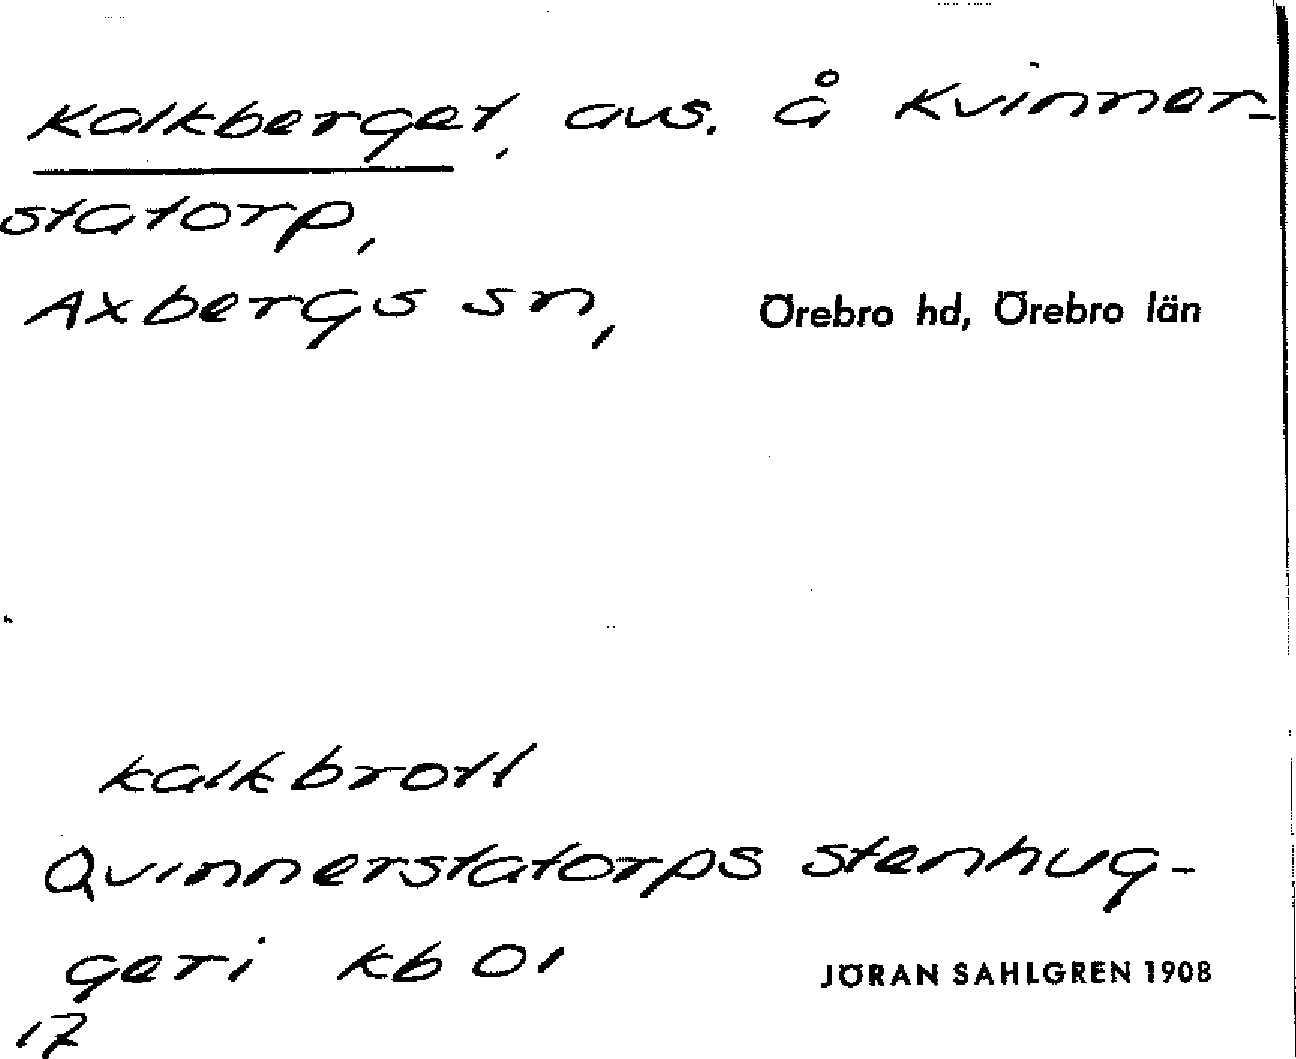 Kalkberget, avs. å Kvinner-
statorp,
Axbergs sn, Örebro hd, Örebro län
kalkbrott
Qvinnerstatorps stenhug-
geri kb 01
JÖRAN SAHLGREN 1908
17